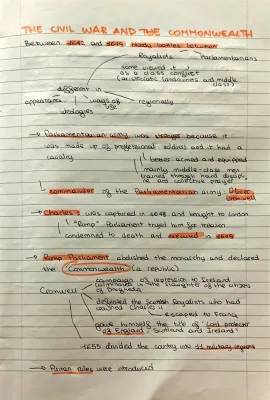 THE CIVIL WAR AND THE COMMONWEALTH
Between 1642 and 1649 battles between
Royalists Parliamentarians
some viewed it
as a class conflict
(aristocratic landowners and middle
class)
different in
appearance ways of regionally
ideologies
→ Parliamentarian army was stronger because it
was made up of professional soldiers and it had a
cavalry
better armed and equipped
mainly middle-class men
trained through hard discipline
and collective prayer
commander of the Parliamentarian army: Oliver
Cromwell
→ Charles I was captured in 1648 and brought to London
"Rump" Parliament tryed him for treason
condemned to death and executed in 1649
→ Rump Parliament abolished the monarchy and declared
the Commonwealth (a republic)
campaign of repression to Ireland
culminated in the slaughter of the citizens
of Drogheda
Cromwell
defeated the Scottish Royalists who had
crowned Charles II
escaped to France
gave himself the title of "Lord protector
of England, Scotland and Ireland"
1655 divided the country into 11 military regions
→ Puritan rules were introduced